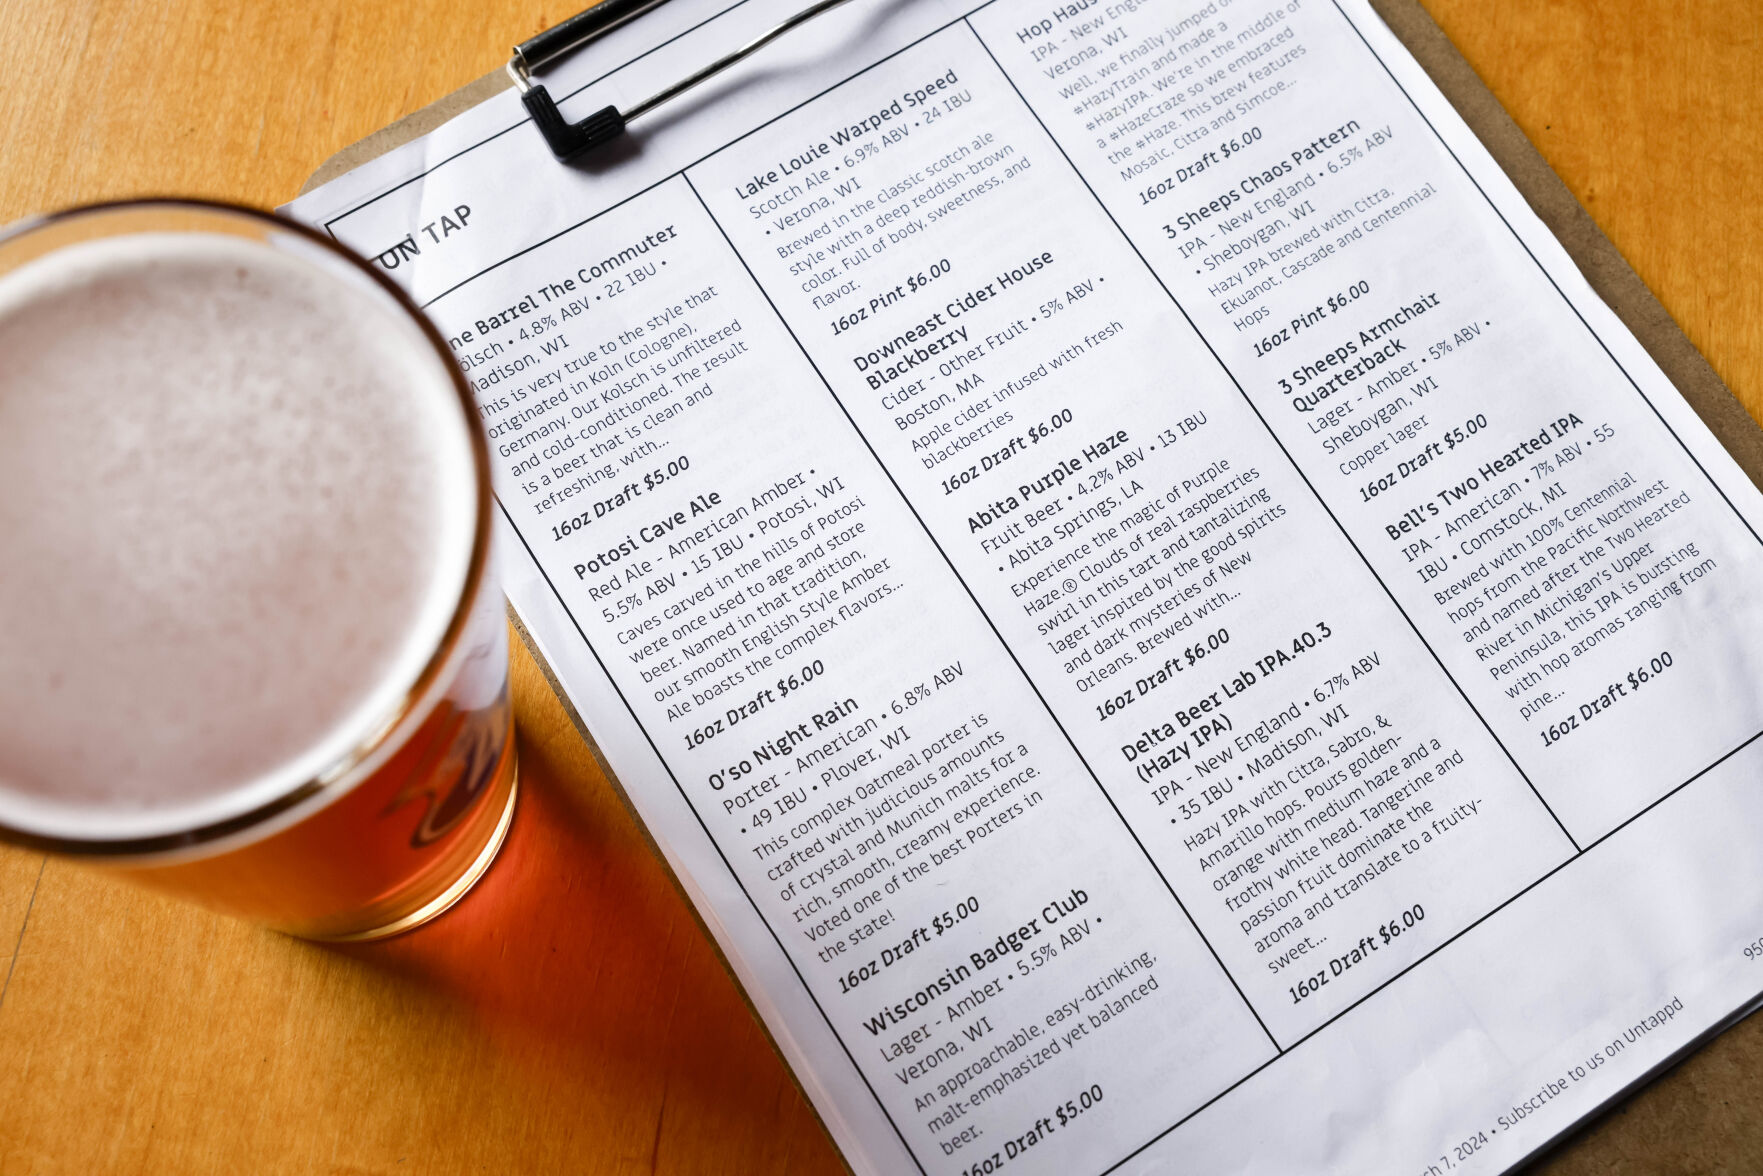 ON TAP
ne Barrel The Commuter
ölsch • 4.8% ABV • 22 IBU •
Madison, WI
This is very true to the style that
originated in Koln (Cologne),
Germany. Our Kolsch is unfiltered
and cold-conditioned. The result
is a beer that is clean and
refreshing, with...
16oz Draft $5.00
Potosi Cave Ale
Red Ale - American Amber •
5.5% ABV • 15 IBU • Potosi, WI
Caves carved in the hills of Potosi
were once used to age and store
beer. Named in that tradition,
our smooth English Style Amber
Ale boasts the complex flavors...
16oz Draft $6.00
O'so Night Rain
Porter - American • 6.8% ABV
• 49 IBU • Plover, WI
This complex Oatmeal porter is
crafted with judicious amounts
of crystal and Munich malts for a
rich, smooth, creamy experience.
Voted one of the best Porters in
the state!
16oz Draft $5.00
Wisconsin Badger Club
Lager - Amber • 5.5% ABV •
Verona, WI
An approachable, easy-drinking,
malt-emphasized yet balanced
beer.
16oz Draft $5.00
Lake Louie Warped Speed
Scotch Ale • 6.9% ABV • 24 IBU
• Verona, WI
Brewed in the classic scotch ale
style with a deep reddish-brown
color. Full of body, sweetness, and
flavor.
16oz Pint $6.00
Downeast Cider House
Blackberry
Cider - Other Fruit • 5% ABV •
Boston, MA
Apple cider infused with fresh
blackberries
16oz Draft $6.00
Abita Purple Haze
Fruit Beer • 4.2% ABV • 13 IBU
• Abita Springs, LA
Experience the magic of Purple
Haze.® Clouds of real raspberries
swirl in this tart and tantalizing
lager inspired by the good spirits
and dark mysteries of New
Orleans. Brewed with...
16oz Draft $6.00
Delta Beer Lab IPA.40.3
(Hazy IPA)
IPA - New England • 6.7% ABV
• 35 IBU • Madison, WI
Hazy IPA with Citra, Sabro, &
Amarillo hops. Pours golden-
orange with medium haze and a
frothy white head. Tangerine and
passion fruit dominate the
aroma and translate to a fruity-
sweet...
16oz Draft $6.00
Hop Haus
IPA - New Eng
Verona, WI
Well, we finally jumped o
#HazyTrain and made a
#HazyIPA. We're in the middle of
a #HazeCraze so we embraced
the #Haze. This brew features
Mosaic, Citra and Simcoe...
16oz Draft $6.00
3 Sheeps Chaos Pattern
IPA - New England • 6.5% ABV
• Sheboygan, WI
Hazy IPA brewed with Citra,
Ekuanot, Cascade and Centennial
Hops
16oz Pint $6.00
3 Sheeps Armchair
Quarterback
Lager - Amber • 5% ABV •
Sheboygan, WI
Copper lager
16oz Draft $5.00
Bell's Two Hearted IPA
IPA - American • 7% ABV • 55
IBU • Comstock, MI
Brewed with 100% Centennial
hops from the Pacific Northwest
and named after the Two Hearted
River in Michigan's Upper
Peninsula, this IPA is bursting
with hop aromas ranging from
pine...
16oz Draft $6.00
ch 7, 2024 • Subscribe to us on Untappd